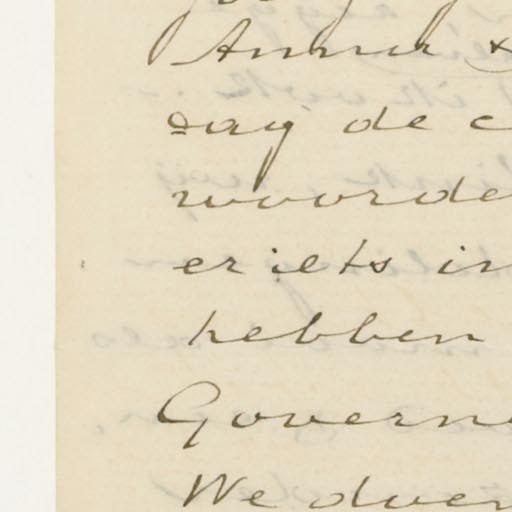 zag de
woorde
er iets in
hebben
Govern
We duer